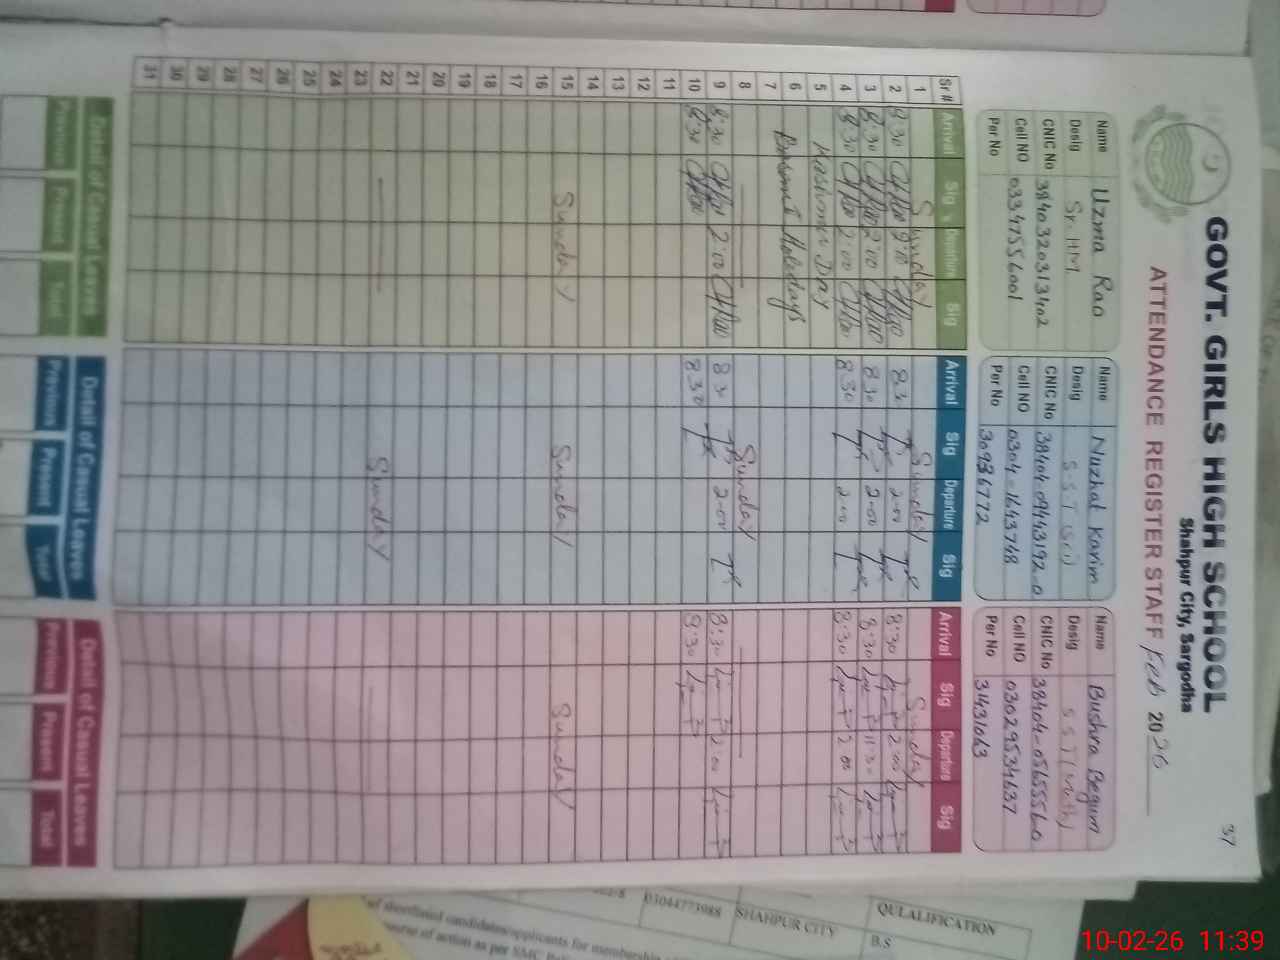 37
GOVT. GIRLS HIGH SCHOOL
Shahpur City, Sargodha
ATTENDANCE REGISTER STAFF Feb 2026
Name Uzma Rao
Desig Sr. HM
CNIC No 3840320313402
Cell NO 03347556001
Per No
Name Nuzhat Karim
Desig S.S.T (Sci)
CNIC No 38404-09443192-0
Cell NO 0304-1643748
Per No 30936772
Name Bushra Begum
Desig S S T (Math)
CNIC No 38404-0565556-0
Cell NO 03029534637
Per No 31431063
Sr # Arrival Sig Departure Sig Arrival Sig Departure Sig Arrival Sig Departure Sig
1 Sunday Sunday Sunday
2 8:30 2:00 8:30 2:00
3 8:30 2:00 8:30 2:00 8:30 11:30
4 8:30 2:00 8:30 2:00 8:30 2:00
5 Kashmir Day
6 Basant Holidays
7
8 Sunday
9 8:30 2:00 8:30 2:00 8:30 2:00
10 8:30 8:30 8:30
11
12
13
14
15 Sunday Sunday Sunday
16
17
18
19
20
21
22 Sunday
23
24
25
26
27
28
29
30
31
Detail of Casual Leaves Detail of Casual Leaves Detail of Casual Leaves
Previous Present Total Previous Present Total Previous Present Total
QULALIFICATION
B.S
03044773988 SHAHPUR CITY
of shortlisted candidates/applicants for membership
course of action as per SMC
10-02-26 11:39